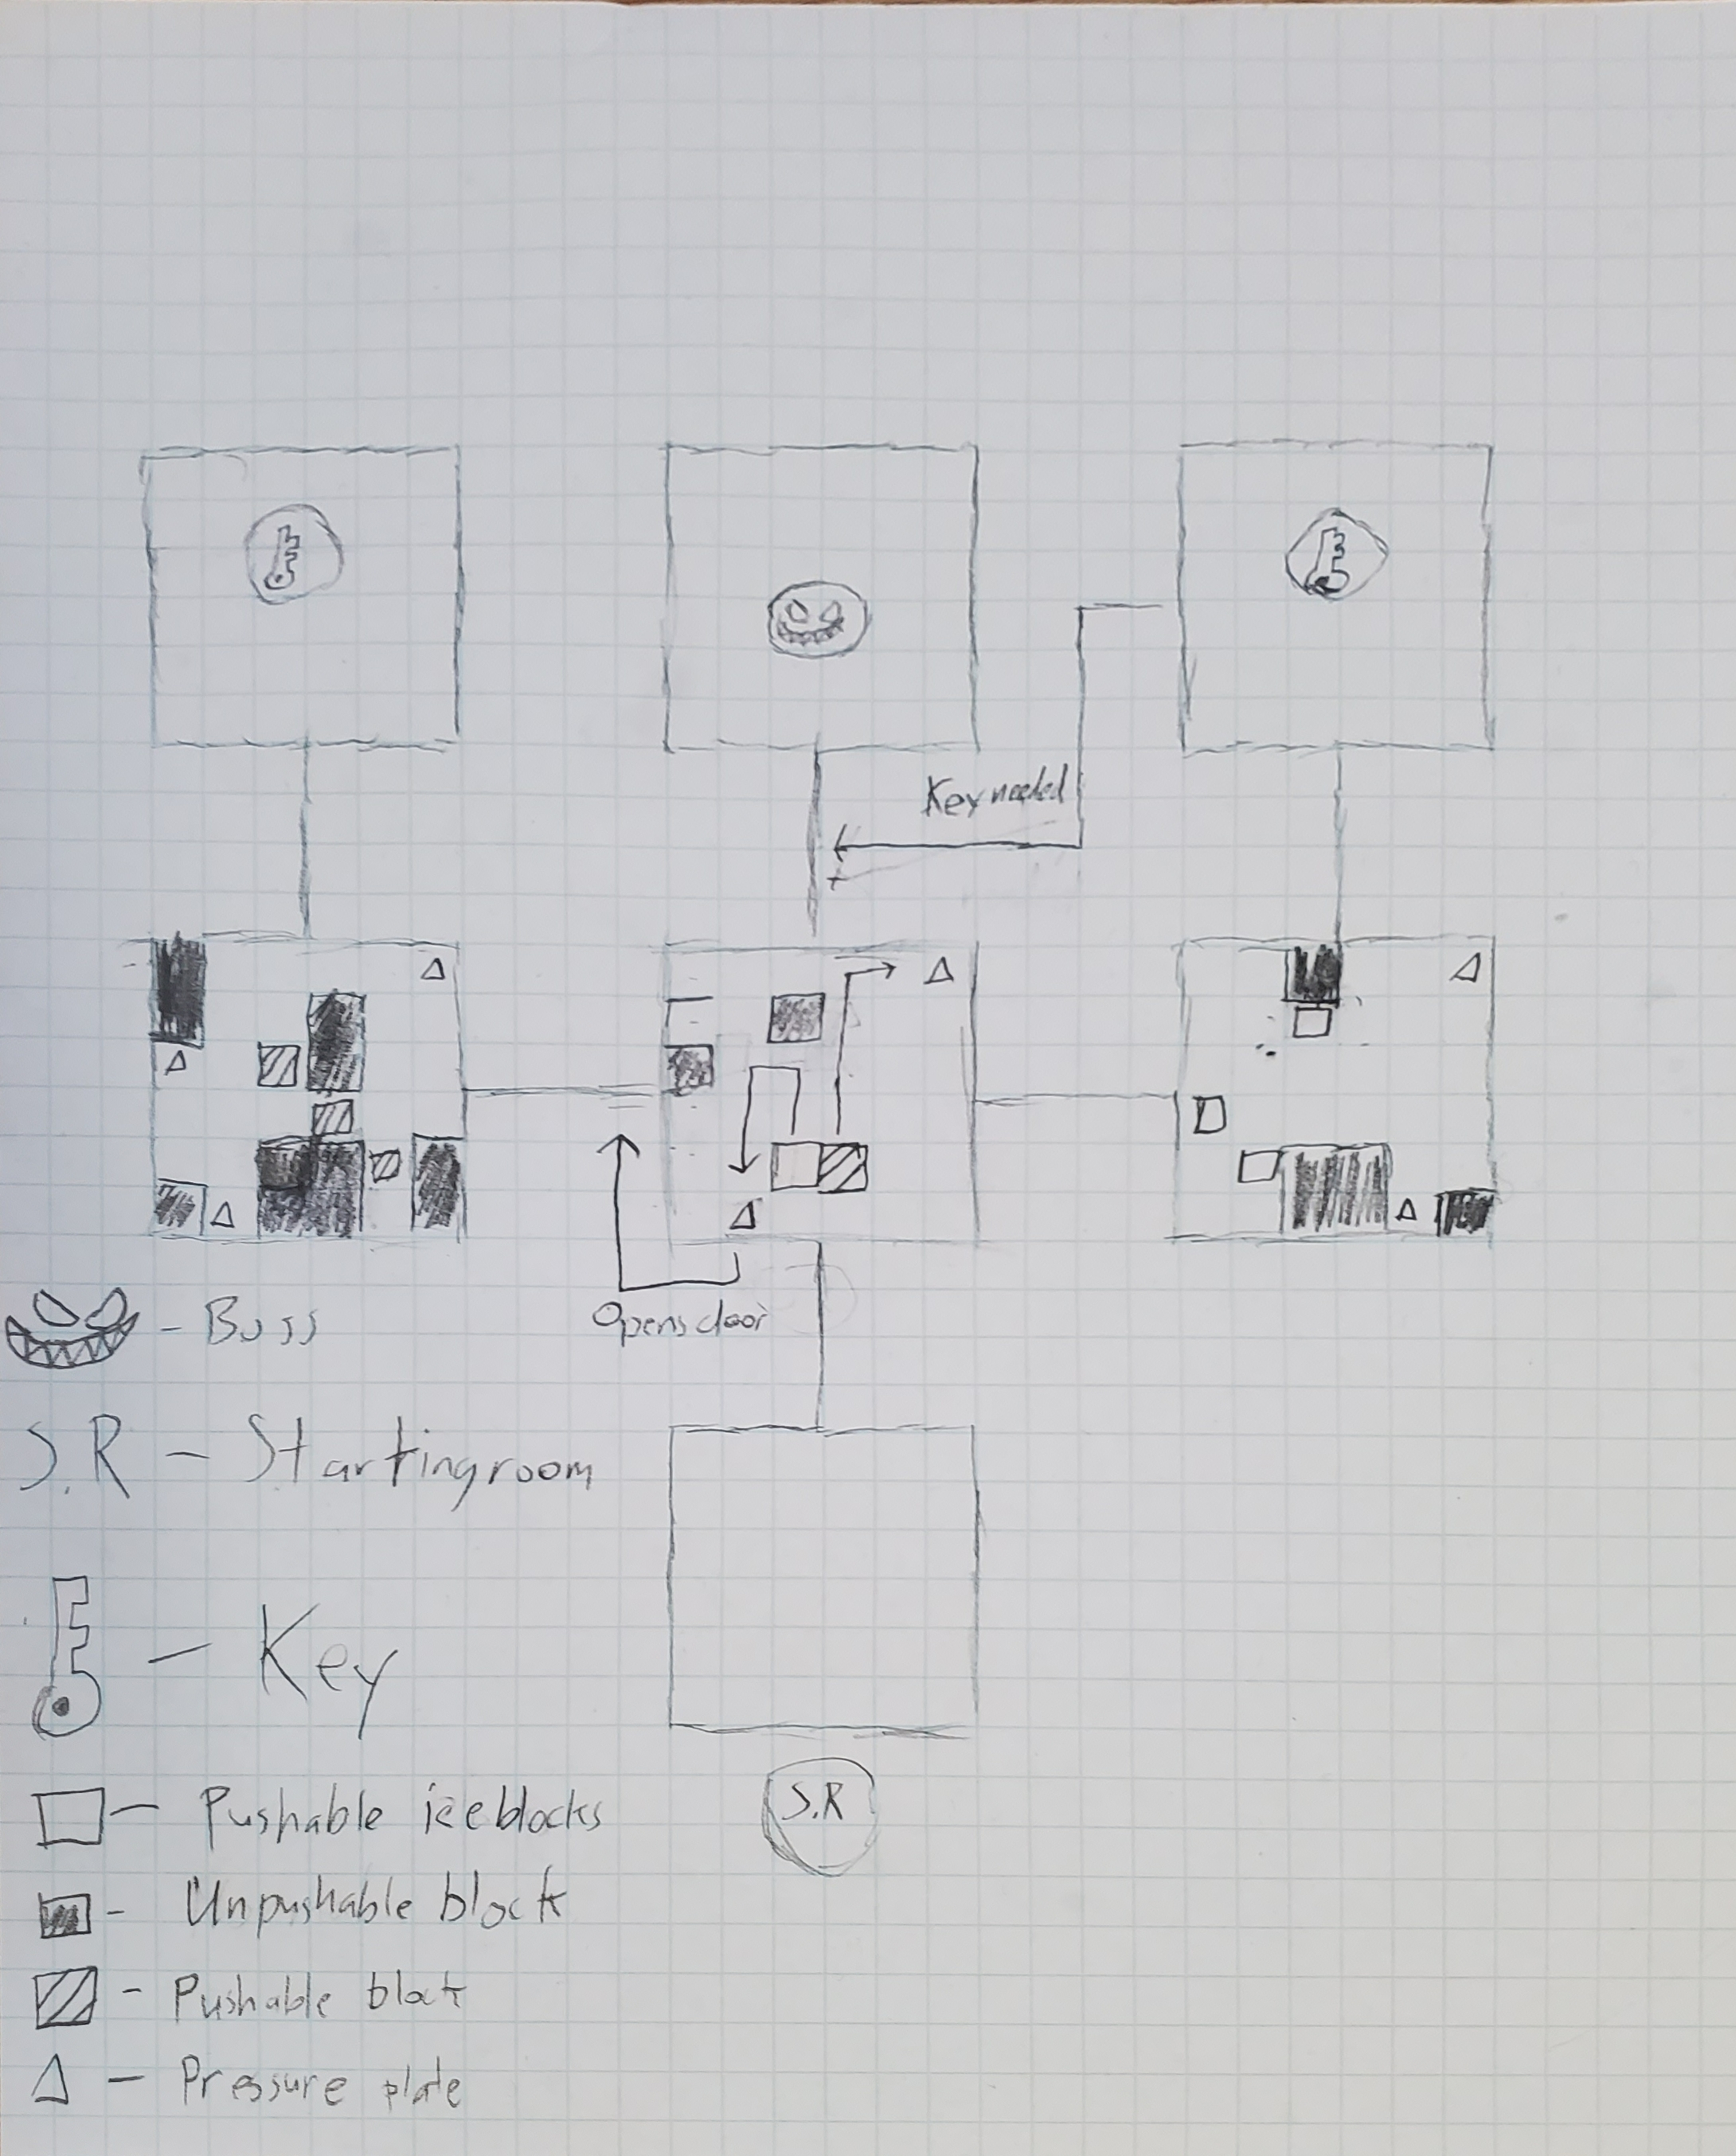 Key needed
Opens door
- Boss
S.R - Startingroom
- Key
- Pushable iceblocks
S.R
- Unpushable block
- Pushable block
- Pressure plate